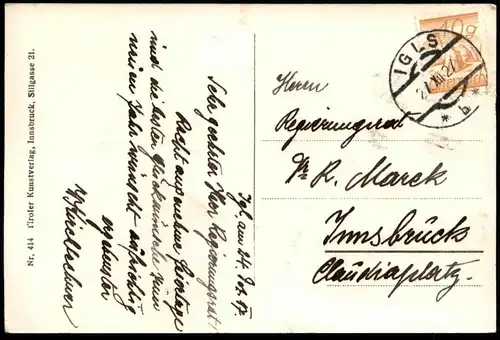 Nr. 414 Tiroler Kunstverlag, Innsbruck, Sillgasse 21.
Sehr geehrter Herr Regierungsrat!
Recht angenehme Feiertage
und die besten Glückwünsche zum
neuen Jahr wünscht aufrichtig
ergebenster
IGLS
27.XII.27
* b *
10g
Herrn
Regierungsrat
Dr. R. Marek
Innsbruck
Claudiaplatz.